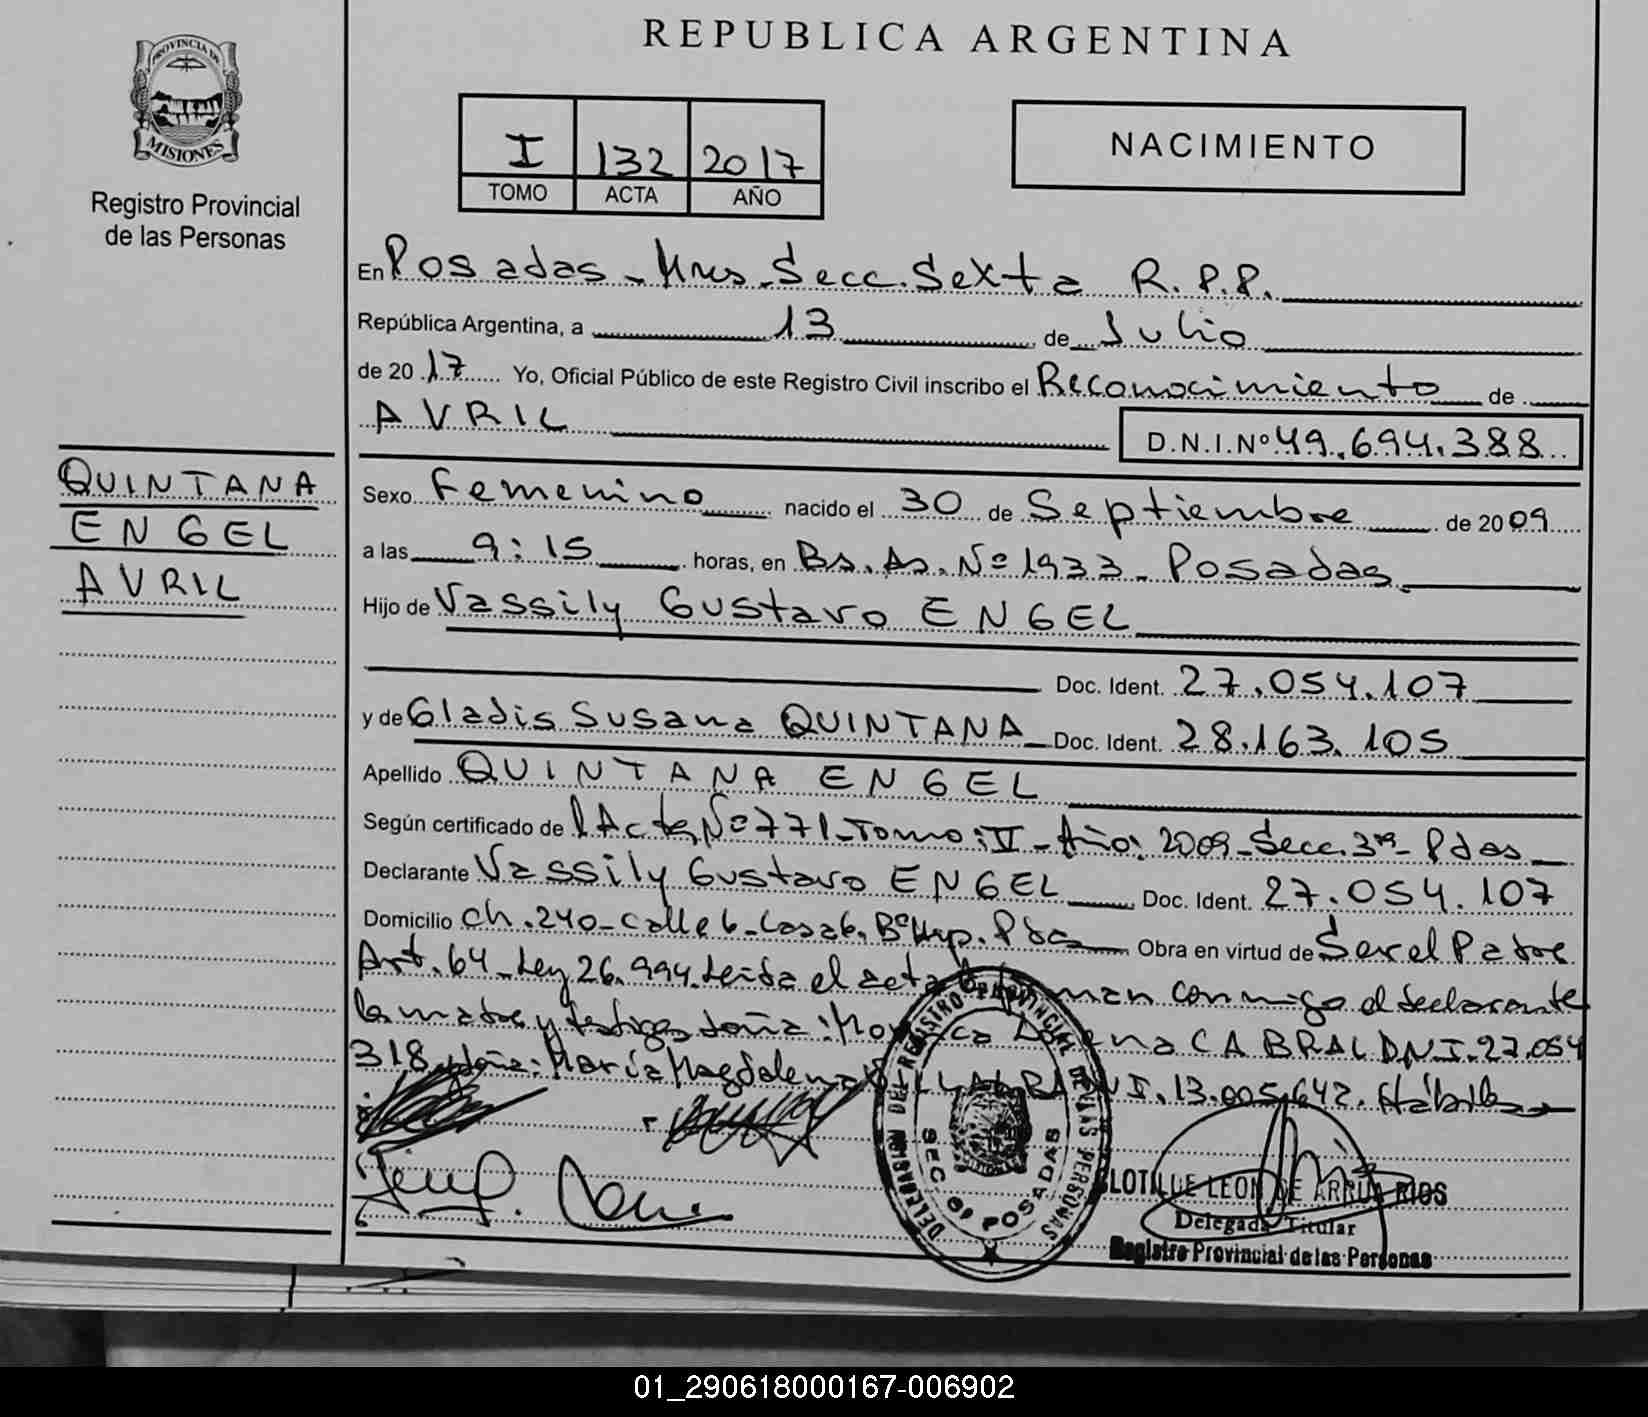 REPUBLICA ARGENTINA
PROVINCIA DE
MISIONES
Registro Provincial
de las Personas
I 132 2017
TOMO ACTA AÑO
NACIMIENTO
En Posadas - Mnes. Secc. Sexta R.P.P.
República Argentina, a 13 de Julio
de 2017 Yo, Oficial Público de este Registro Civil inscribo el Reconocimiento de
AVRIL D.N.I.Nº 49.694.388
QUINTANA
ENGEL
AVRIL
Sexo Femenino nacido el 30 de Septiembre de 2009
a las 9:15 horas, en Bs. As. Nº 1933 - Posadas
Hijo de Vassily Gustavo ENGEL
Doc. Ident. 27.054.107
y de Gladis Susana QUINTANA Doc. Ident. 28.163.105
Apellido QUINTANA ENGEL
Según certificado de Acta Nº 771 - Tomo: II - Año: 2009 - Secc. 3ra - Pdas
Declarante Vassily Gustavo ENGEL Doc. Ident. 27.054.107
Domicilio ch. 240 - calle 6 - casa 6. Bº Pdas Obra en virtud de Ser el Padre
Art. 64 - Ley 26.994. Leida el acta firman conmigo el declarante
la madre y testigos doña: CABRAL DNI. 27.054
318 y doña: María Magdalena D.N.I. 13.005.642. Hábiles
DELEGACION DEL REGISTRO PROVINCIAL DE LAS PERSONAS
SEC 6ª POSADAS
CLOTILDE LEON DE ARRUA RIOS
Delegada Titular
Registro Provincial de las Personas
01_290618000167-006902